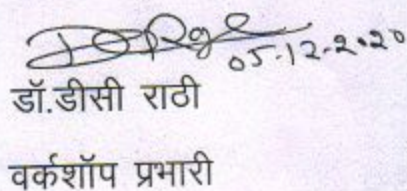 05-12-2020
डॉ.डीसी राठी
वर्कशॉप प्रभारी